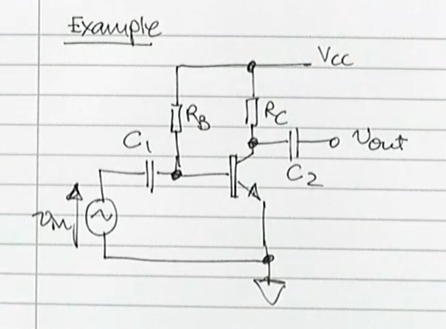 Example
VCC
RB
RC
C1
C2
Vout
vin